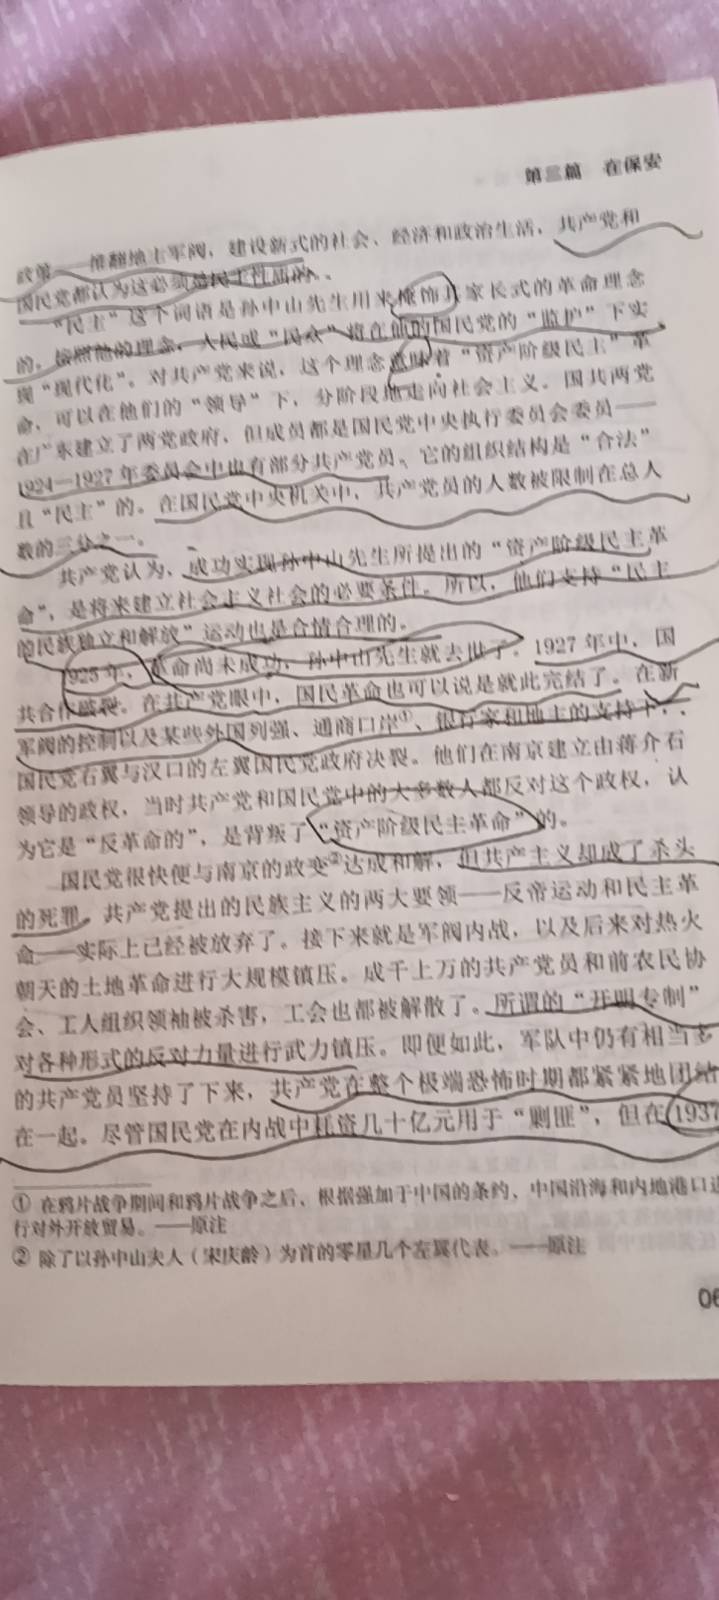 第三篇 在保安
政策——推翻地主军阀，建设新式的社会、经济和政治生活，共产党和
国民党都认为这必须是民主性质的。
“民主”这个词语是孙中山先生用来掩饰其家长式的革命理念
的。按照他的理念，人民或“民众”将在他的国民党的“监护”下实
现“现代化”。对共产党来说，这个理念意味着“资产阶级民主”革
命，可以在他们的“领导”下，分阶段地走向社会主义。国共两党
在广东建立了两党政府，但成员都是国民党中央执行委员会委员——
1924—1927年委员会中也有部分共产党员。它的组织结构是“合法”
且“民主”的。在国民党中央机关中，共产党员的人数被限制在总人
数的三分之一。
共产党认为，成功实现孙中山先生所提出的“资产阶级民主革
命”，是将来建立社会主义社会的必要条件。所以，他们支持“民主
的民族独立和解放”运动也是合情合理的。
1925年，革命尚未成功，孙中山先生就去世了。1927年中，国
共合作破裂。在共产党眼中，国民革命也可以说是就此完结了。在新
军阀的控制以及某些外国列强、通商口岸①、银行家和地主的支持下，
国民党右翼与汉口的左翼国民党政府决裂。他们在南京建立由蒋介石
领导的政权，当时共产党和国民党中的大多数人都反对这个政权，认
为它是“反革命的”，是背叛了“资产阶级民主革命”的。
国民党很快便与南京的政变②达成和解，但共产主义却成了杀头
的死罪。共产党提出的民族主义的两大要领——反帝运动和民主革
命——实际上已经被放弃了。接下来就是军阀内战，以及后来对热火
朝天的土地革命进行大规模镇压。成千上万的共产党员和前农民协
会、工人组织领袖被杀害，工会也都被解散了。所谓的“开明专制”
对各种形式的反对力量进行武力镇压。即便如此，军队中仍有相当多
的共产党员坚持了下来，共产党在整个极端恐怖时期都紧紧地团结
在一起。尽管国民党在内战中耗资几十亿元用于“剿匪”，但在1937
① 在鸦片战争期间和鸦片战争之后，根据强加于中国的条约，中国沿海和内地港口进
行对外开放贸易。——原注
② 除了以孙中山夫人（宋庆龄）为首的零星几个左翼代表。——原注